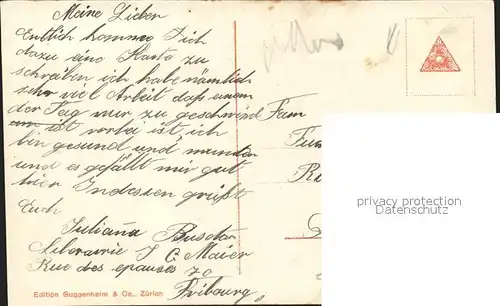 Meine Lieben
Entlich komme Ich
dazu eine Karte zu
schreiben ich habe nämlich
sehr viel Arbeit dass einem
der Tag nur zu geschwind
um ist vorbei ist, ich
bin gesund und munter
und es gefällt mir gut
hier Indessen grüßt
Euch
Juliana
Librairie J C Maier
Rue des epouses 70
Fribourg
Fam
Edition Guggenheim & Co., Zürich
privacy protection
Datenschutz